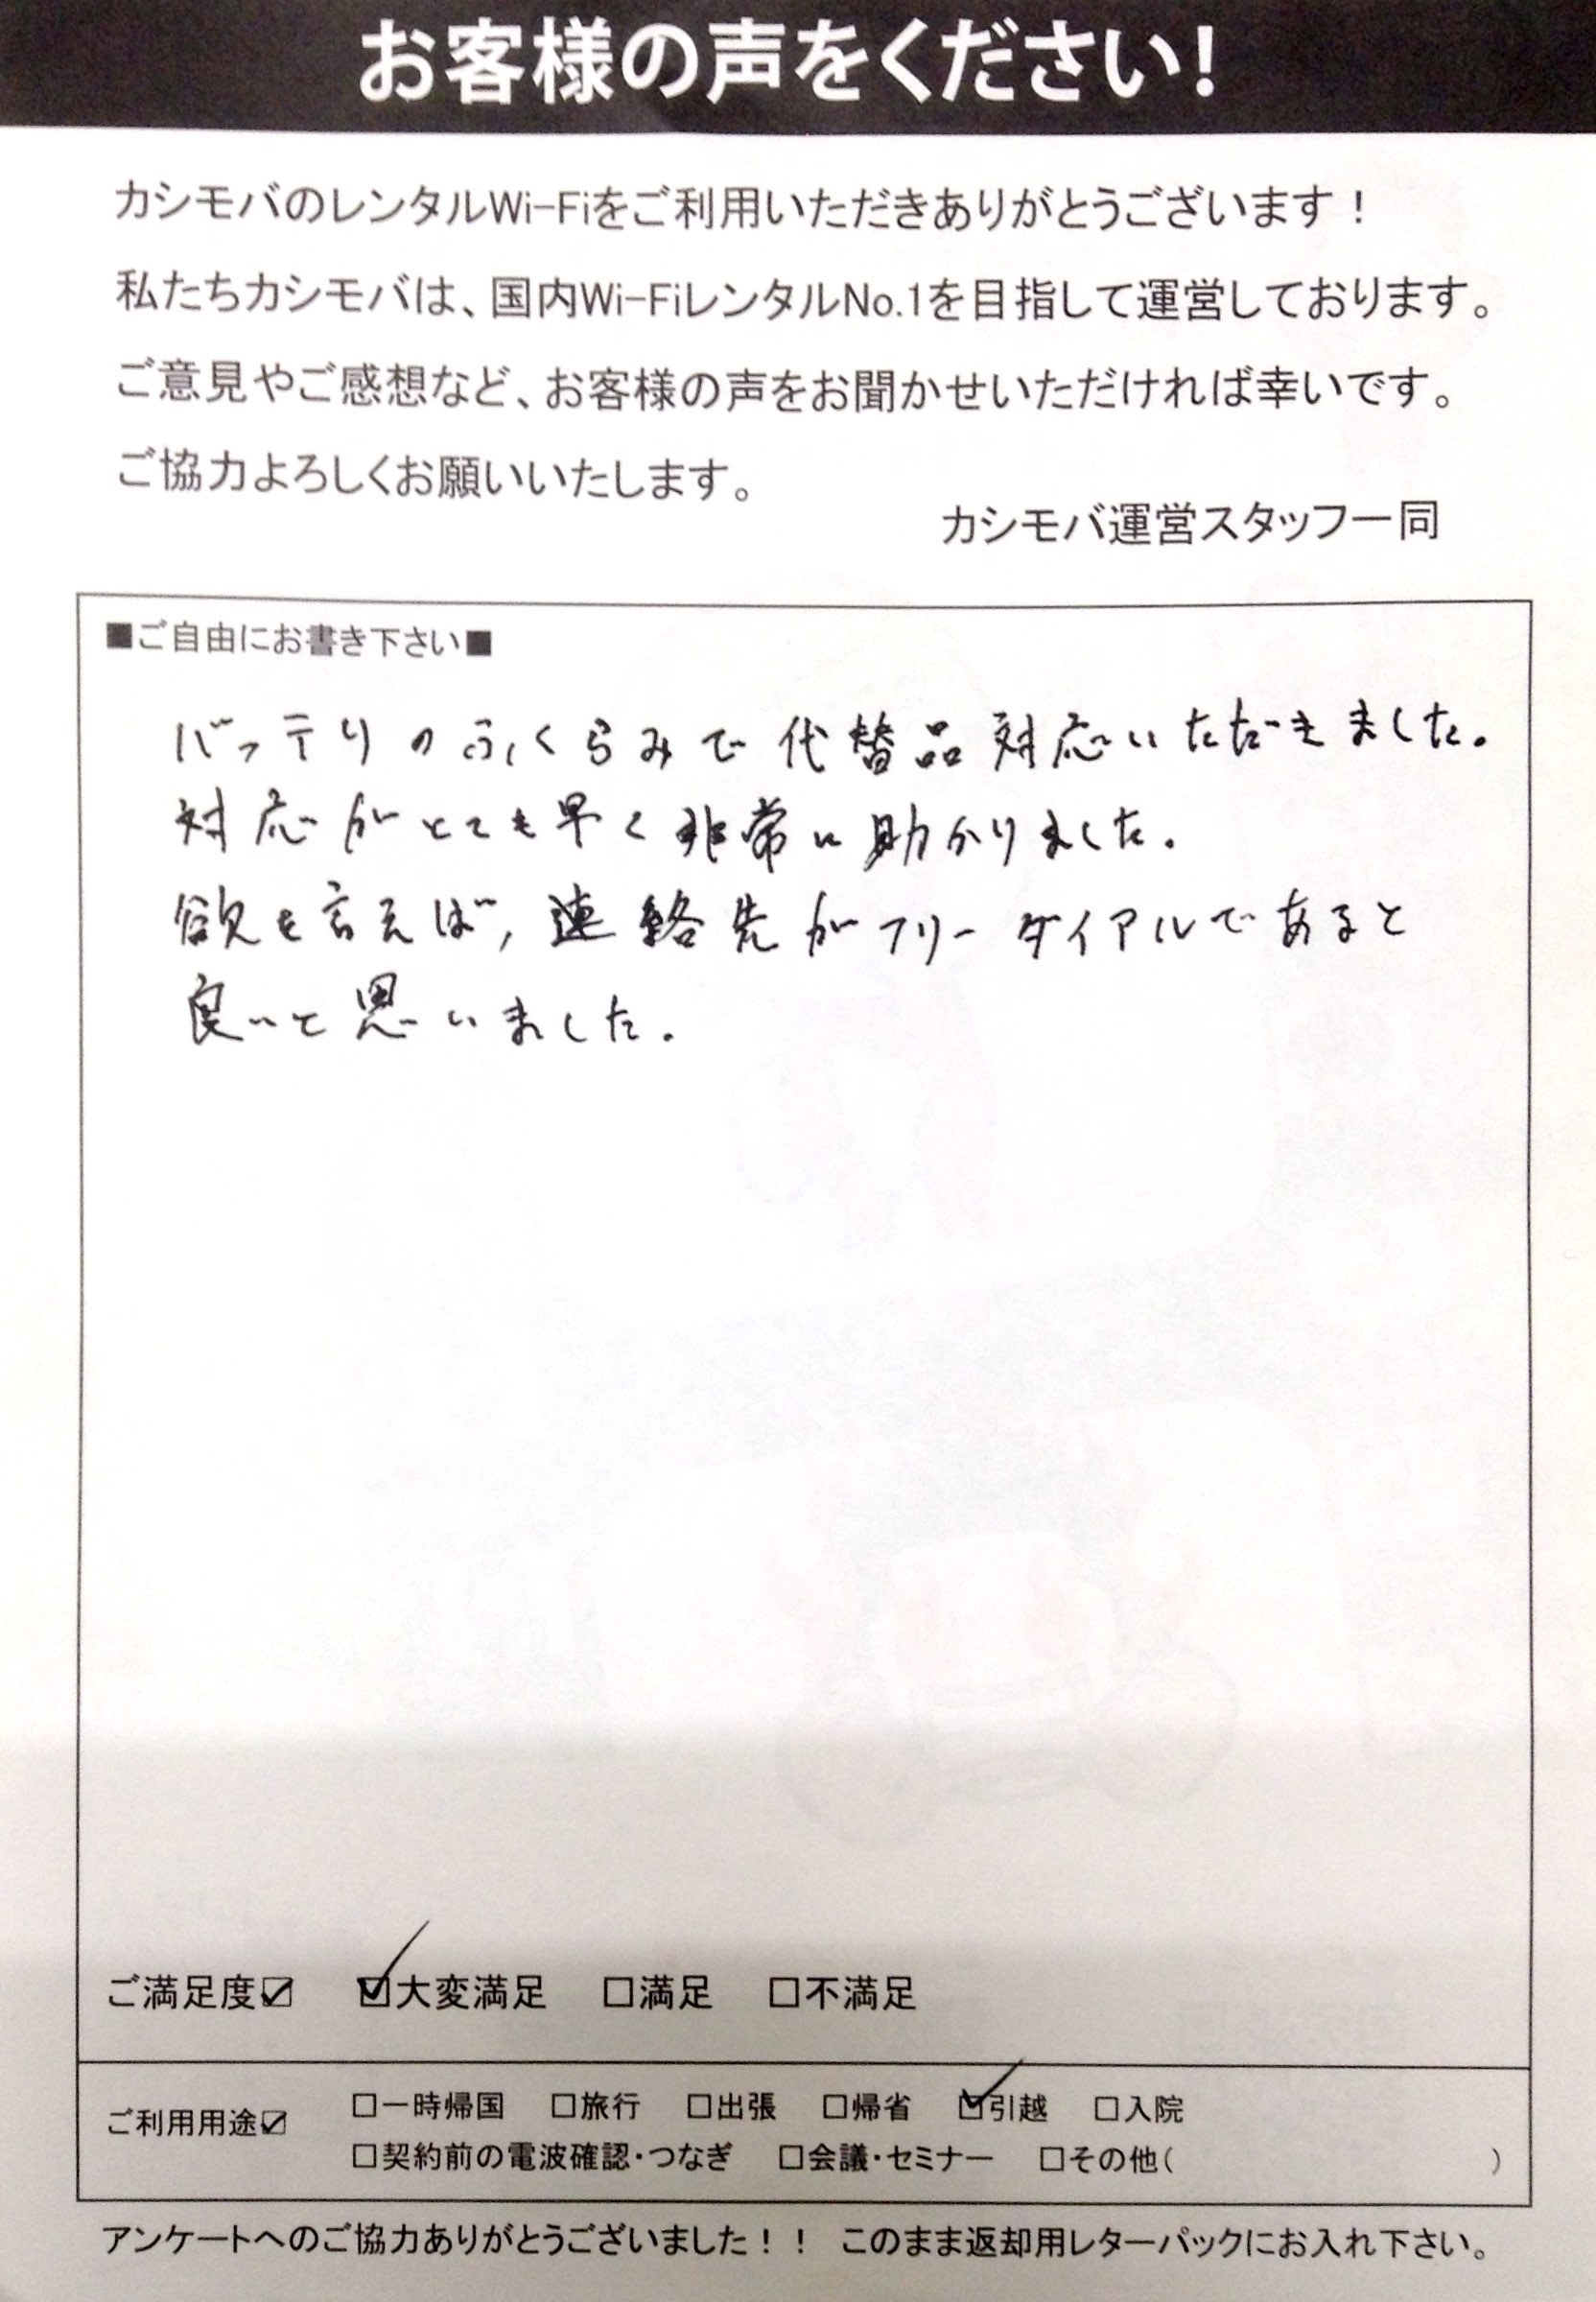 お客様の声をください!
カシモバのレンタルWi-Fiをご利用いただきありがとうございます!
私たちカシモバは、国内Wi-FiレンタルNo.1を目指して運営しております。
ご意見やご感想など、お客様の声をお聞かせいただければ幸いです。
ご協力よろしくお願いいたします。
カシモバ運営スタッフ一同
■ご自由にお書き下さい■
バッテリのふくらみで代替品対応いただきました。
対応がとても早く非常に助かりました。
欲を言えば, 連絡先がフリーダイアルであると
良いと思いました。
ご満足度☑ ☑大変満足 □満足 □不満足
ご利用用途☑ □一時帰国 □旅行 □出張 □帰省 ☑引越 □入院
□契約前の電波確認・つなぎ □会議・セミナー □その他( )
アンケートへのご協力ありがとうございました!! このまま返却用レターパックにお入れ下さい。